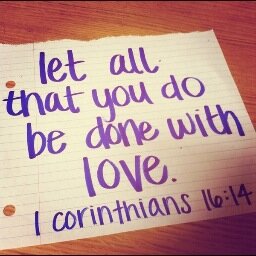 let all
that you do
be done with
love.
1 corinthians 16:14